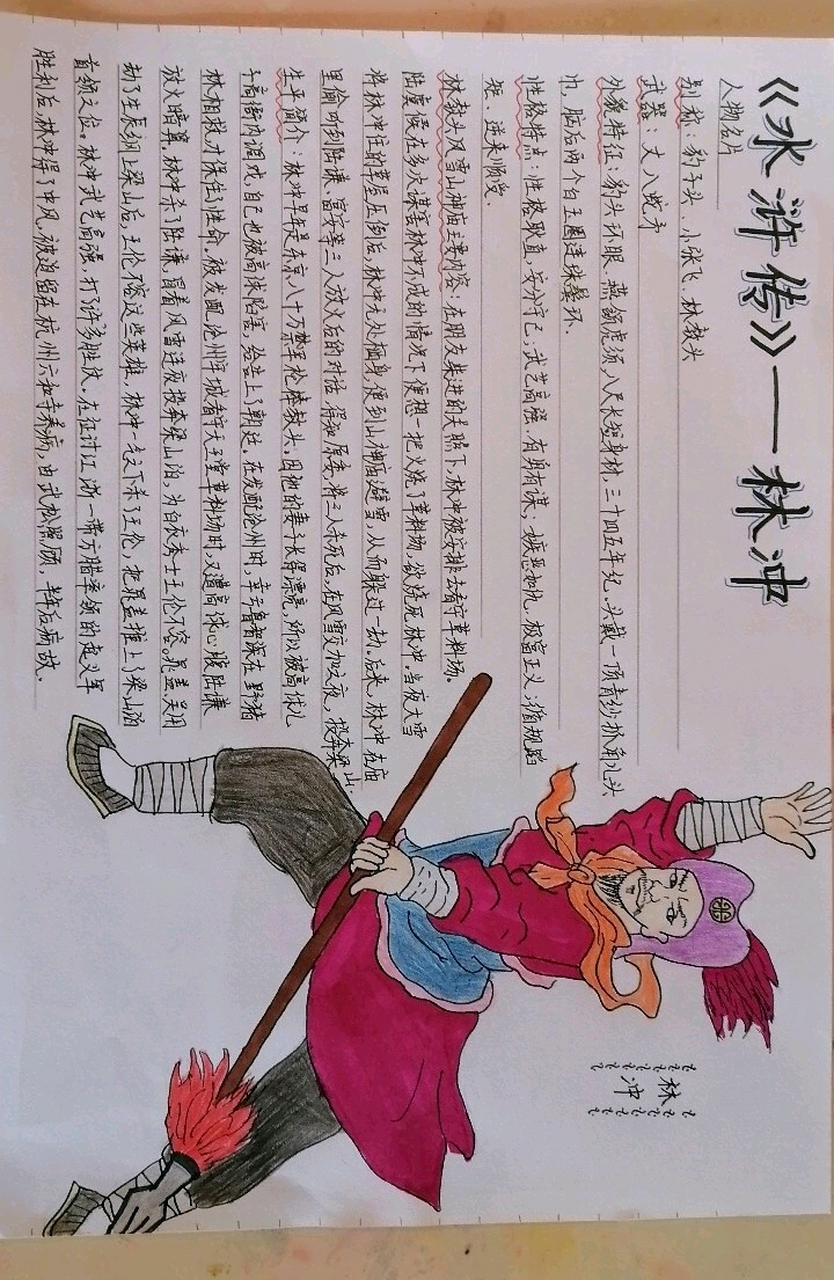 《水浒传》——林冲
人物名片
别称：豹子头、小张飞、林教头
武器：丈八蛇矛
外貌特征：豹头环眼、燕颔虎须，八尺长短身材，三十四五年纪。头戴一顶青纱抓角儿头
巾，脑后两个白玉圈连珠鬓环。
性格特点：性格耿直，安分守己；武艺高强，有勇有谋；嫉恶如仇，极富正义；循规蹈
矩，逆来顺受。
林教头风雪山神庙主要内容：在朋友柴进的关照下，林冲被安排去看守草料场。
陆虞候在多次谋害林冲不成的情况下，便想一把火烧了草料场，欲烧死林冲。当夜大雪
将林冲住的草屋压倒后，林冲无处栖身，便到山神庙避雪，从而躲过一劫。后来，林冲在庙
里偷听到陆谦、富安等三人放火后的对话，得知原委，将三人杀死后，在风雪交加之夜，投奔梁山.
生平简介：林冲早年是东京八十万禁军枪棒教头。因他的妻子长得漂亮，所以被高俅儿
子高衙内调戏，自己也被高俅陷害，给害上了朝廷。在发配沧州时，幸亏鲁智深在野猪
林相救，才保住了性命。被发配沧州牢城看守天王堂草料场时，又遭高俅心腹陆谦
放火暗算。林冲杀了陆谦，冒着风雪连夜投奔梁山泊，为白衣秀士王伦不容。晁盖、吴用
劫了生辰纲上梁山后，王伦不容这些英雄，林冲一气之下杀了王伦，把晁盖推上了梁山泊
首领之位。林冲武艺高强，打了许多胜仗。在征讨江浙一带方腊率领的起义军
胜利后，林冲得了中风，被迫留在杭州六和寺养病，由武松照顾，半年后病故。
林
冲